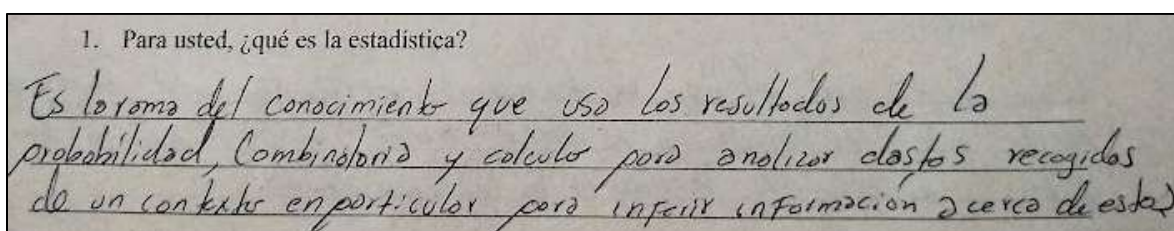 1. Para usted, ¿qué es la estadística?
Es la rama del conocimiento que usa los resultados de la
probabilidad, Combinatoria y calculo para analizar recogidos
de un contexto en particular para inferir información acerca de estos